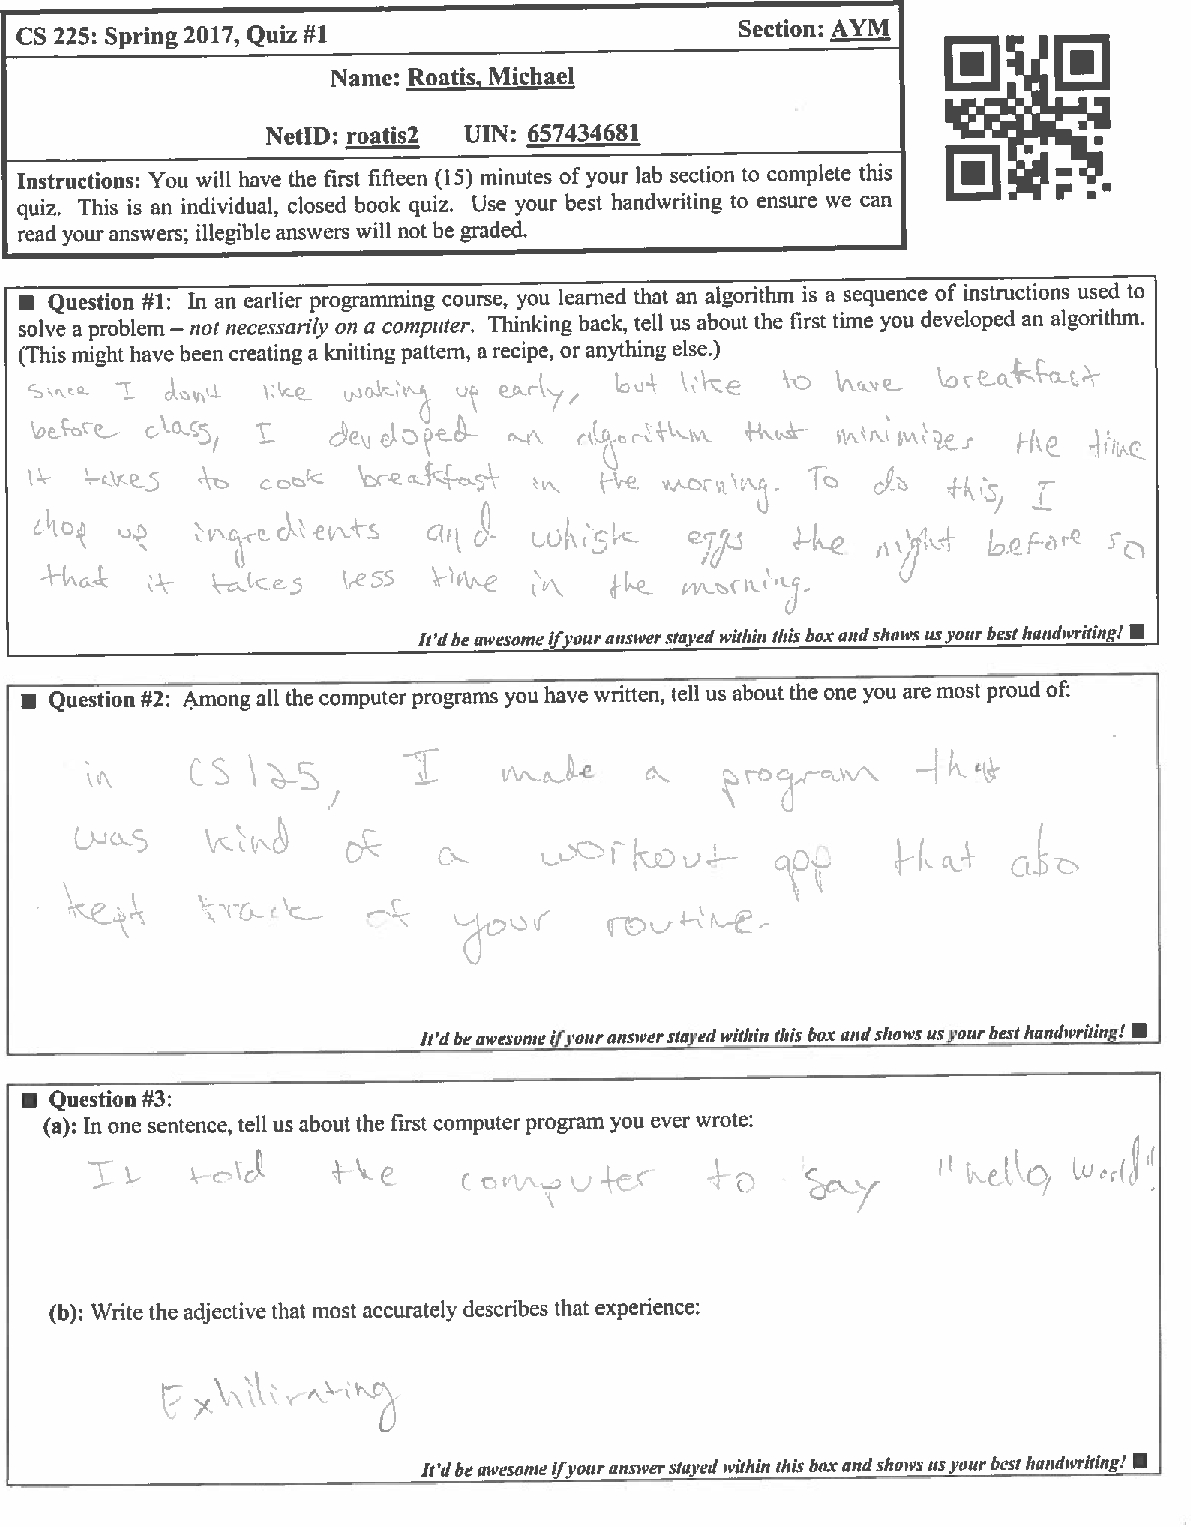 CS 225: Spring 2017, Quiz #1 Section: AYM
Name: Roatis, Michael
NetID: roatis2 UIN: 657434681
Instructions: You will have the first fifteen (15) minutes of your lab section to complete this
quiz. This is an individual, closed book quiz. Use your best handwriting to ensure we can
read your answers; illegible answers will not be graded.
■ Question #1: In an earlier programming course, you learned that an algorithm is a sequence of instructions used to
solve a problem – not necessarily on a computer. Thinking back, tell us about the first time you developed an algorithm.
(This might have been creating a knitting pattern, a recipe, or anything else.)
Since I don't like waking up early, but like to have breakfast
before class, I developed an algorithm that minimizes the time
it takes to cook breakfast in the morning. To do this, I
chop up ingredients and whisk eggs the night before so
that it takes less time in the morning.
It'd be awesome if your answer stayed within this box and shows us your best handwriting! ■
■ Question #2: Among all the computer programs you have written, tell us about the one you are most proud of:
in CS125, I made a program that
was kind of a workout app that also
kept track of your routine.
It'd be awesome if your answer stayed within this box and shows us your best handwriting! ■
■ Question #3:
(a): In one sentence, tell us about the first computer program you ever wrote:
It told the computer to say "hello, world!"
(b): Write the adjective that most accurately describes that experience:
Exhilirating
It'd be awesome if your answer stayed within this box and shows us your best handwriting! ■